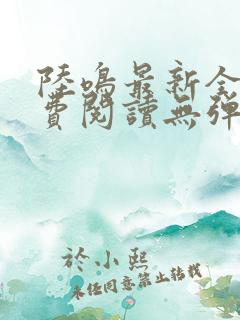 陸鳴最新全
費閱讀無彈
於小熙
未經同意禁止轉載